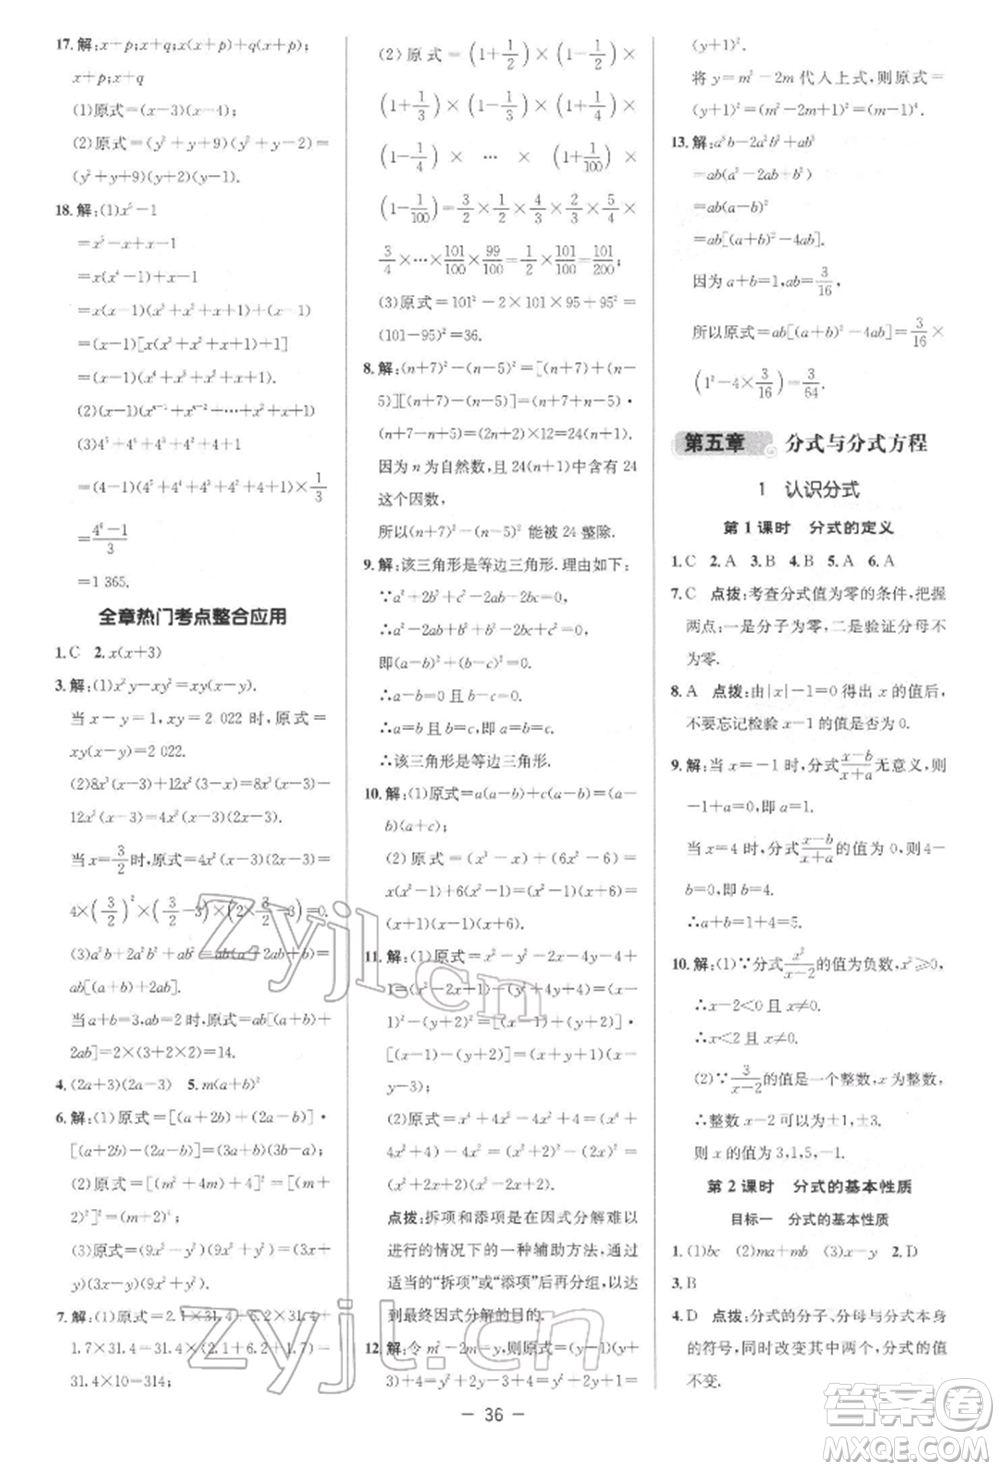 17.解:x+p;x+q;x(x+p);
x+p;x+q
(1)原式=(x-3)(x-4);
(2)原式=(y²+y+9)(y²+y)=
(y²+y+9)(y+1)y.
18.解:(1)x⁵-1
=x⁵-x+x-1
=x(x⁴-1)+x-1
=(x-1)[x(x³+x²+x+1)+1]
=(x-1)(x⁴+x³+x²+x+1)
(3)4⁵+4⁴+4³+4²+4+1
=(4-1)(4⁵+4⁴+4³+4²+4+1)×1/3
=(4⁶-1)/3
=1 365.
全章热门考点整合应用
1.C 2.x(x+3)
3.解:(1)x²y-xy²=xy(x-y).
当x-y=1,xy=2 022时,原式=
xy(x-y)=2 022.
当x=3/2时,原式=4x²(2x-3)(x-3)=
4×(3/2)²×(2×3/2-3)×(3/2-3)=0.
当a+b=3,ab=2时,原式=ab[(a+b)²+
2ab]=2×(3+2×2)=14.
4.(2a+3)(2a-3) 5.m(a+b)²
6.解:(1)原式=[(a+2b)+(2a-b)]·
[(a+2b)-(2a-b)]=(3a+b)(3b-a).
(2)原式=[(m²+4)+4m][(m²+4)-4m]
=(m+2)²(m-2)².
7.解:(1)原式=2.1×31.4+6.2×31.4+
1.7×31.4=31.4×(2.1+6.2+1.7)=
31.4×10=314;
(2)原式=(1+1/2)×(1-1/2)×
(1+1/3)×(1-1/3)×(1+1/4)×
(1-1/4)×…×(1+1/100)×
(1-1/100)=3/2×1/2×4/3×2/3×5/4×
3/4×…×101/100×99/100=1/2×101/100=101/200;
(3)原式=101²-2×101×95+95²=
(101-95)²=36.
8.解:(n+7)²-(n-5)²=[(n+7)+(n-
5)][(n+7)-(n-5)]=(n+7+n-5)·
(n+7-n+5)=(2n+2)×12=24(n+1).
因为n为自然数,且24(n+1)中含有24
这个因数,
所以(n+7)²-(n-5)²能被24整除.
9.解:该三角形是等边三角形.理由如下:
∵a²+2b²+c²-2ab-2bc=0,
∴a²-2ab+b²+b²-2bc+c²=0,
即(a-b)²+(b-c)²=0.
∴a-b=0且b-c=0,
∴a=b且b=c.
∴a=b=c.
∴该三角形是等边三角形.
10.解:(1)原式=a(a-b)+c(a-b)=(a-
b)(a+c);
(2)原式=(x³-x)+(6x²-6)=
x(x²-1)+6(x²-1)=(x²-1)(x+6)=
(x+1)(x-1)(x+6).
11.解:(1)原式=x²-y²-2x-4y-4+1
=(x²-2x+1)-(y²+4y+4)=(x-
1)²-(y+2)²=[(x-1)+(y+2)]·
[(x-1)-(y+2)]=(x+y+1)(x-
y-3);
(2)原式=x⁴+x²y²+y⁴=x⁴+
2x²y²+y⁴-x²y²=(x²+y²)²-x²y²
=(x²+y²+xy)(x²+y²-xy).
点拨:拆项和添项是在因式分解难以
进行的情况下的一种辅助方法,通过
适当的“拆项”或“添项”后再分组,以达
到最终因式分解的目的.
12.解:令m²-2m=y,则原式=y(y-
(y+1)².
将y=m²-2m代入上式,则原式=
(y+1)²=(m²-2m+1)²=(m-1)⁴.
13.解:a³b-2a²b²+ab³
=ab(a²-2ab+b²)
=ab(a-b)²
=ab[(a+b)²-4ab].
因为a+b=1,ab=3/16,
所以原式=ab[(a+b)²-4ab]=3/16×
(1²-4×3/16)=3/64.
第五章 分式与分式方程
1 认识分式
第1课时 分式的定义
1.C 2.A 3.B 4.B 5.A 6.A
7.C 点拨:考查分式值为零的条件,把握
两点:一是分子为零,二是验证分母不
为零.
8.A 点拨:由|x|-1=0得出x的值后,
不要忘记检验x-1的值是否为0.
9.解:当x=-1时,分式(x-b)/(x+a)无意义,则
-1+a=0,即a=1.
当x=4时,分式(x-b)/(x+a)的值为0,则
4-b=0,即b=4.
∴a+b=1+4=5.
10.解:(1)∵分式x²/(x-2)的值为负数,x²≥0,
∴x-2<0且x≠0.
∴x<2且x≠0.
(2)∵3/(x-2)的值是一个整数,x为整数,
∴整数x-2的值可能为±1,±3.
则x的值为3,1,5,-1.
第2课时 分式的基本性质
目标一 分式的基本性质
1.(1)bc (2)ma+mb (3)x 2.D
3.B
4.D 点拨:分式的分子、分母与分式本身
的符号,同时改变其中两个,分式的值
不变.
- 36 -
zyjl.cn
zyjl.cn
答案圈
MXQE.COM